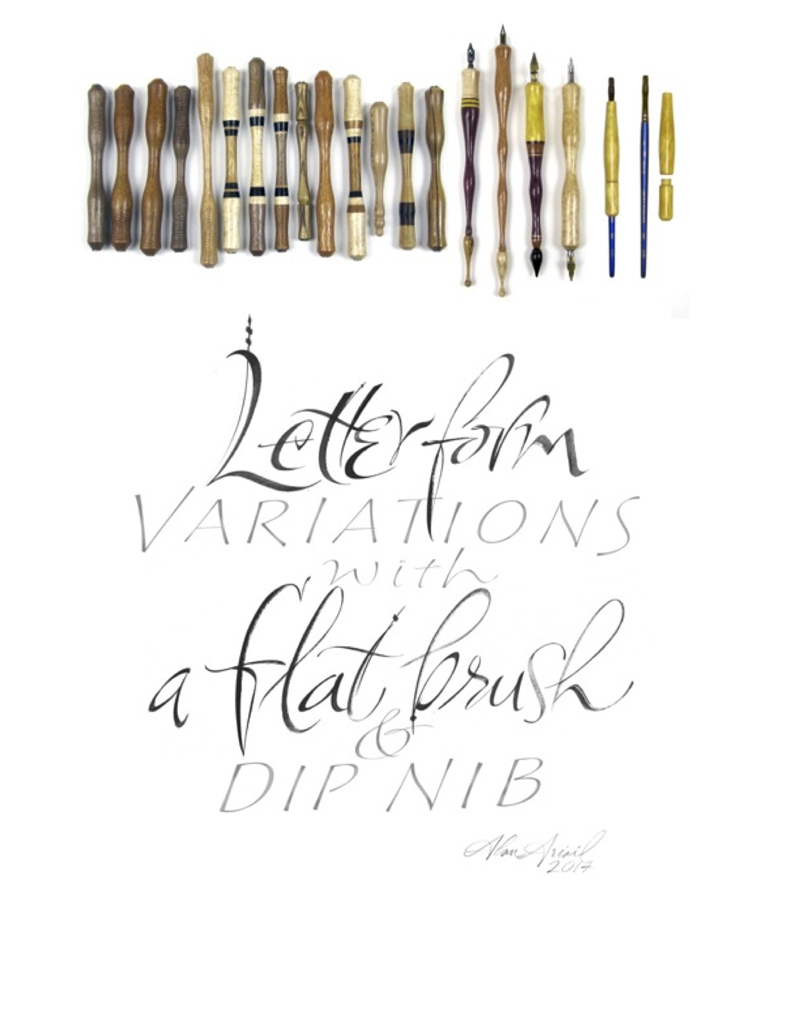 Letterform
VARIATIONS
with
a flat brush
&
DIP NIB
Alan Ariail
2017